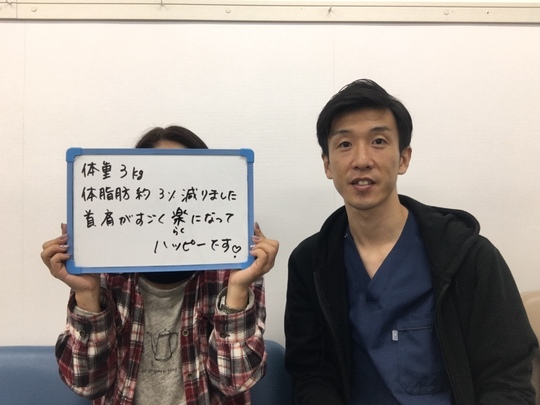 体重 3kg
体脂肪 約 3% 減りました
首肩がすごく楽になって
らく
ハッピーです♡